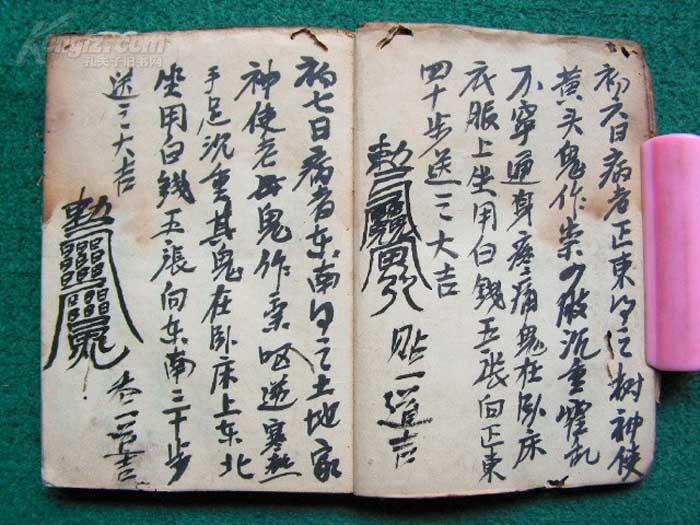 初六日病者正東得之树神使
黄头鬼作祟手散沉重霍乱
不寧通身疼痛鬼在卧床
衣服上坐用白钱五张向正東
四十步送之大吉
勅
贴一道吉
初七日病者东南得之土地家
神使老母鬼作祟呕逆寒热
手足沉重其鬼在卧床上东北
坐用白钱五張向东南三十步
送之大吉
勅
一道吉
Kongfz.com
孔夫子旧书网